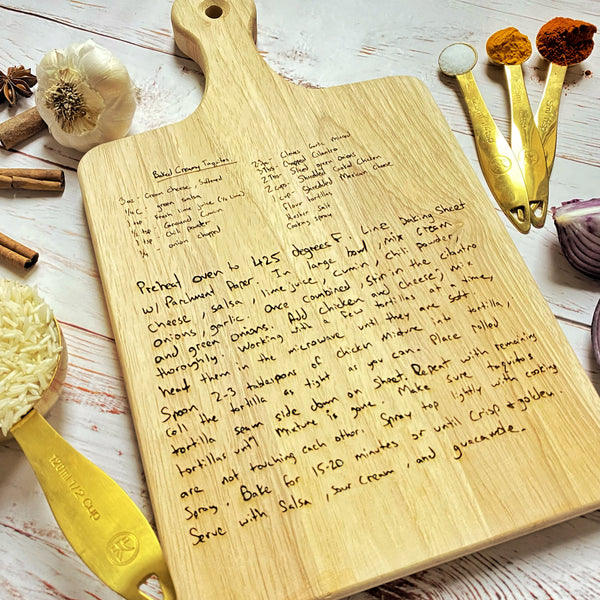 Baked Creamy Taquitos
3 oz. Cream Cheese, Softened
1/4 C. green Salsa
1 T. Fresh lime juice (1/2 lime)
1/2 tsp. Ground Cumin
1 tsp. Chili powder
1/4 onion chopped
2 Cloves Garlic minced
3 Tbs. Chopped Cilantro
2 Tbs. Sliced green Onions
2 Cups. Shredded Cooked Chicken
1 Cup. Shredded Mexican Cheese
Flour tortillas
Kosher Salt
Cooking Spray
Preheat oven to 425 degrees F. Line Baking Sheet
w/ Parchment Paper. In large bowl, mix Cream
Cheese, Salsa, lime juice, cumin, chili powder,
onions, garlic. Once Combined, Stir in the Cilantro
and green onions. Add Chicken and Cheese, Mix
thoroughly. Working with a few tortillas at a time,
heat them in the microwave until they are soft
Spoon 2-3 tablespoons of chicken mixture into tortilla,
roll the tortilla as tight as you can. Place rolled
tortilla seam side down on Sheet. Repeat with remaining
tortillas until mixture is gone. Make sure taquitos
are not touching each other. Spray top lightly with cooking
Spray. Bake for 15-20 minutes or until Crisp & golden.
Serve with Salsa, Sour Cream, and guacamole.
120ml 1/2 Cup